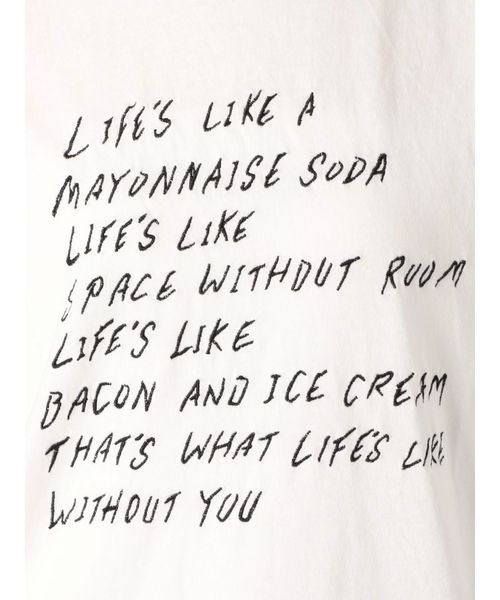 LIFE'S LIKE A
MAYONNAISE SODA
LIFE'S LIKE
SPACE WITHOUT ROOM
LIFE'S LIKE
BACON AND ICE CREAM
THAT'S WHAT LIFE'S LIKE
WITHOUT YOU